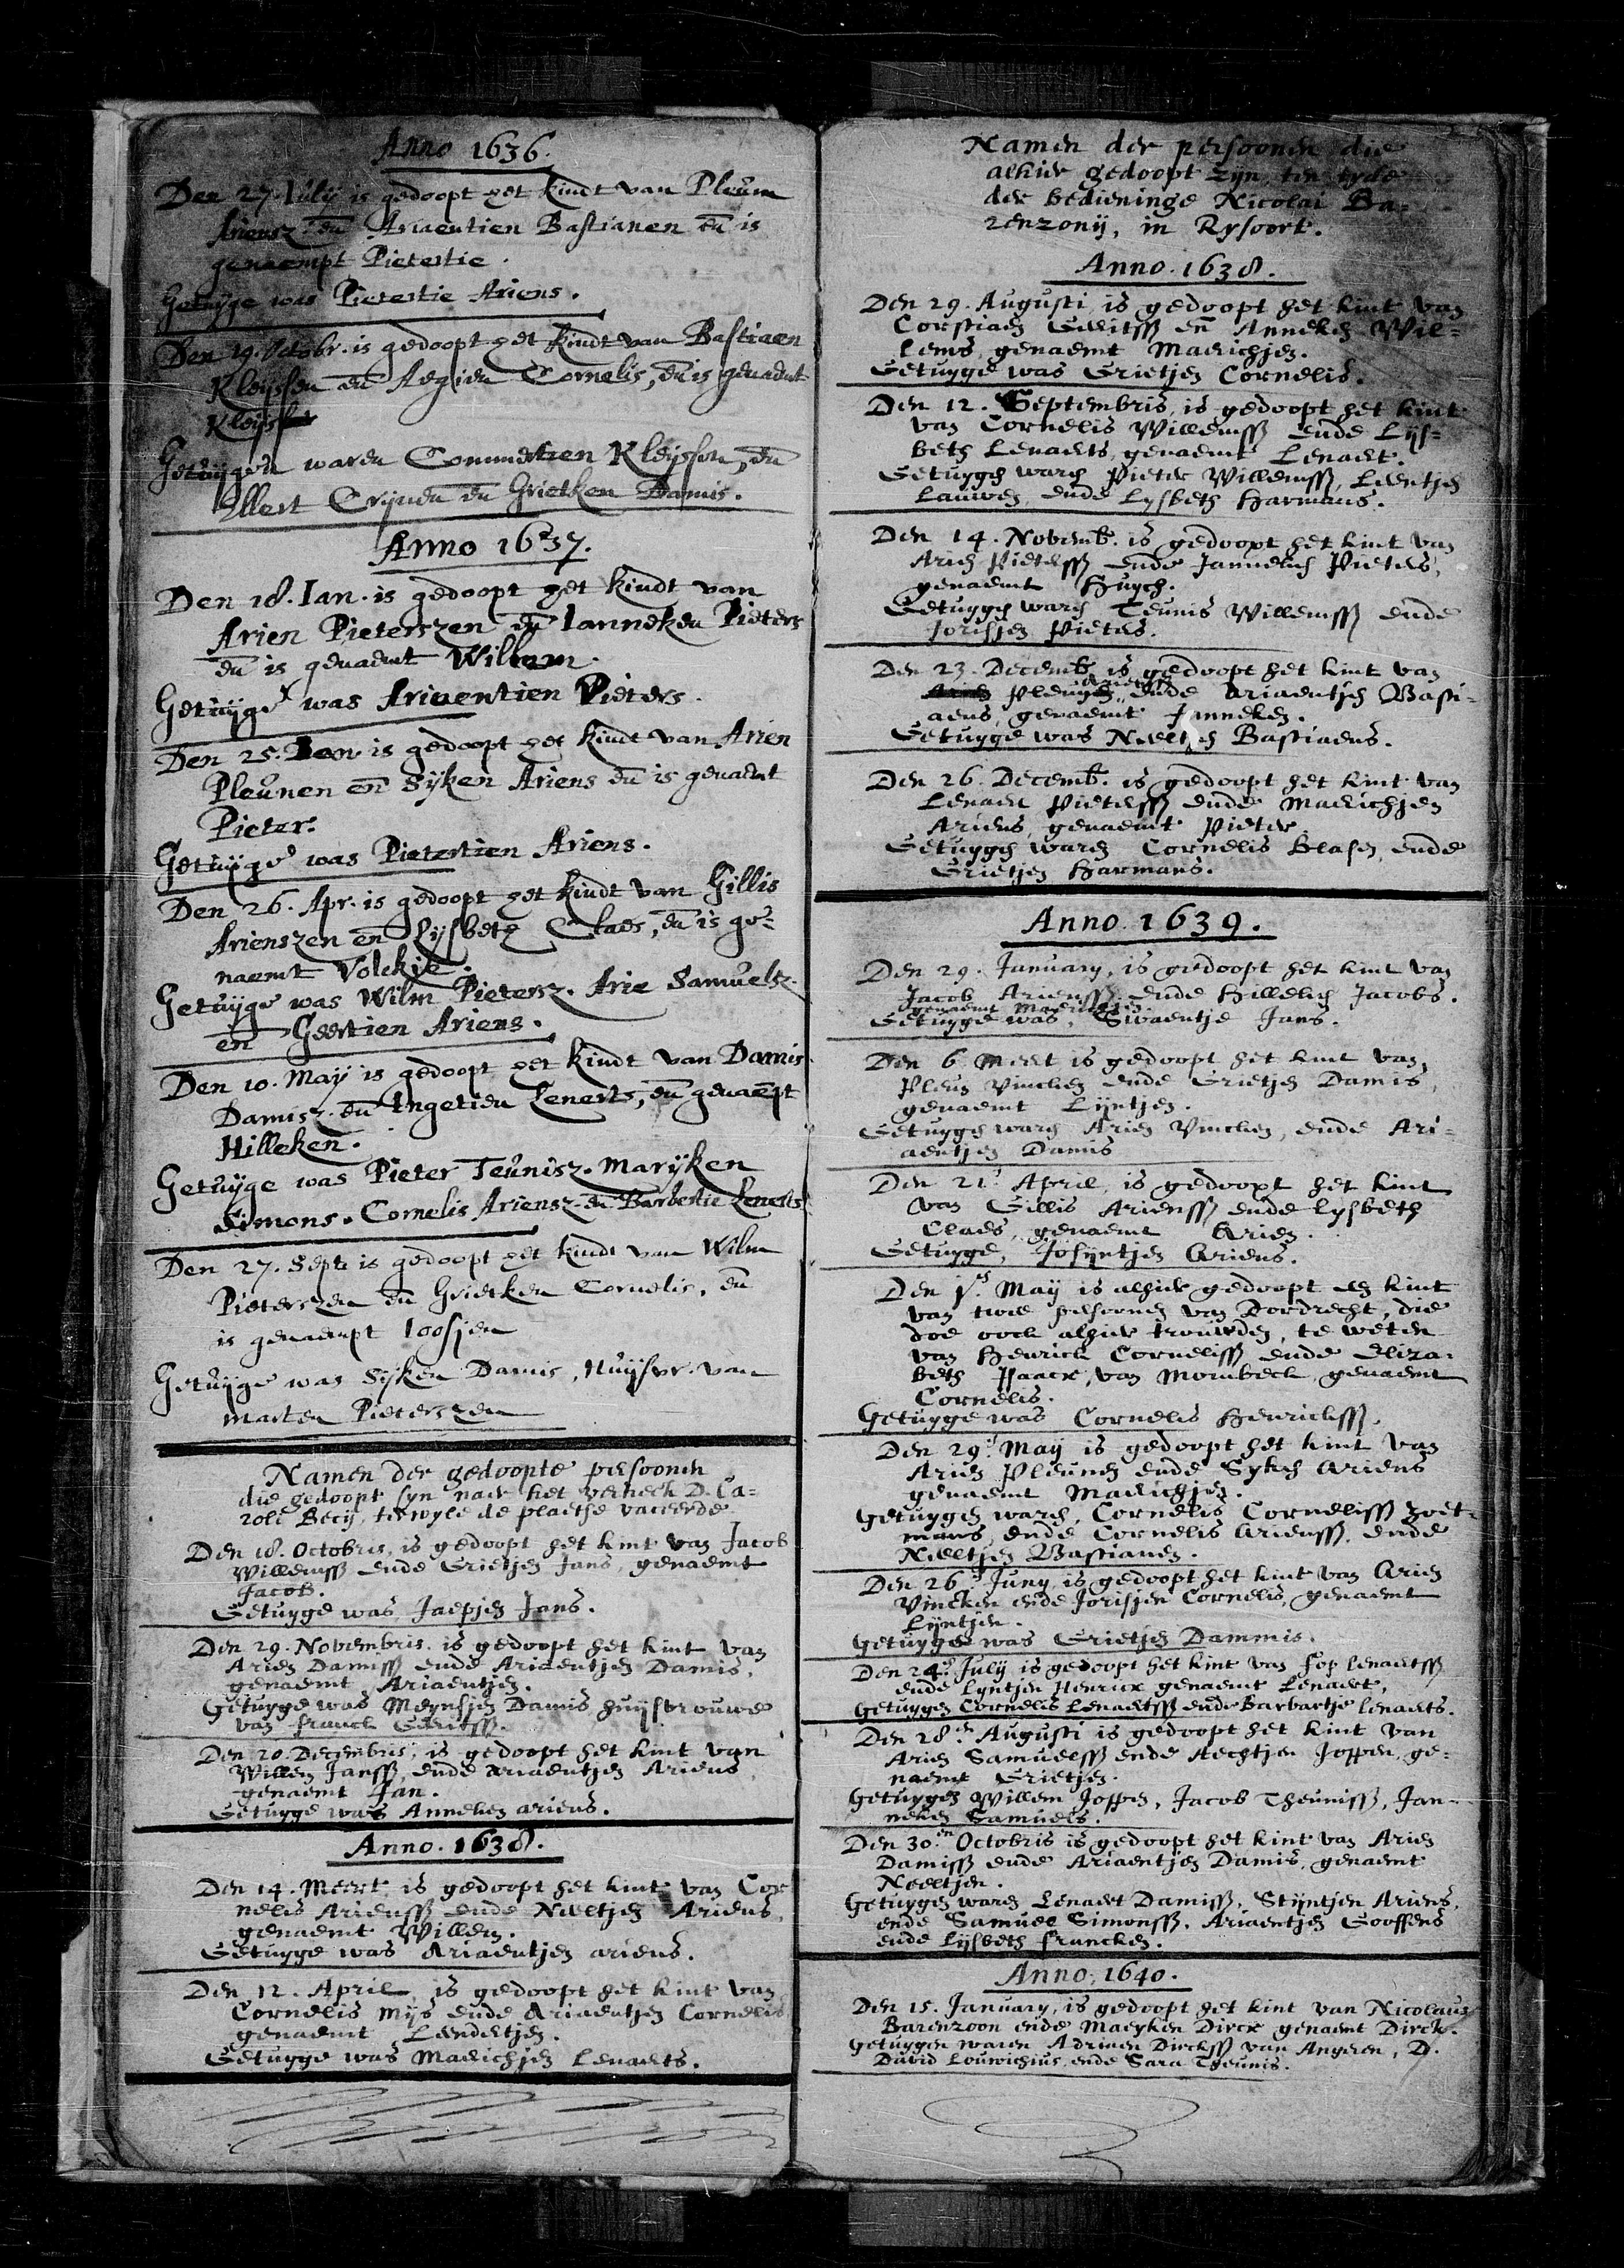 Anno 1636.
Den 27. Iulij is gedoopt het kindt van Pleun
Ariensz eñ Ariaentien Bastianen eñ is
genaempt Pietertie.
Getuijge was Pietertie Ariens.
Den 19. Octobr. is gedoopt het kindt van Bastiaen
Kleijssen eñ Aegien Cornelis, eñ is genaemt
Kleijs
Getuijgen waren Commertien Kleijssen, eñ
Ellert Crijnen eñ Grietken Damis.
Anno 1637.
Den 18. Ian. is gedoopt het kindt van
Arien Pieterszen eñ Ianneken Pieters
eñ is genaemt Willem.
Getuijge was Ariaentien Pieters.
Den 25. Ian. is gedoopt het kindt van Arien
Pleunen eñ Sijken Ariens eñ is genaemt
Pieter.
Getuijge was Pietertien Ariens.
Den 26. Apr. is gedoopt het kindt van Gillis
Arienszen eñ Lijsbeth Claes, eñ is ge-
naemt Volckje.
Getuijge was Wilm Pietersz. Arie Samuelsz.
eñ Geertien Ariens.
Den 10. May is gedoopt het kindt van Damis
Damisz. eñ Ingetien Lenerts, eñ genaēpt
Hilleken.
Getuijge was Pieter Teunisz. Marijken
Simons. Cornelis Ariensz. eñ Barbertie Lenerts
Den 27. Septē is gedoopt het kindt van Wilm
Pieterszen eñ Grietken Cornelis, eñ
is genaempt Ioosjen
Getuijge was Sijken Damis, Huijsvr. van
Marten Pieterszen
Namen der gedoopte persoonen
die gedoopt syn naer het vertreck D. Ca-
roli Becij, terwyle de plaetse vaceerde
Den 18. Octobris, is gedoopt het kint van Jacob
Willemsß ende Grietjen Jans, genaemt
Jacob.
Getuyge was Jaepjen Jans.
Den 29. Novembris. is gedoopt het kint van
Arien Damisß ende Ariaentjen Damis,
genaemt Ariaentjen.
Getuyge was Meynsjen Damis huijsvrouwe
van Franck Geeritsß.
Den 20. Decembris, is gedoopt het kint van
Willem Jansß, ende Ariaentjen Ariens
genaemt Jan.
Getuyge was Anneken ariens.
Anno. 1638.
Den 14. Meert is gedoopt het kint van Cor
nelis Ariensß ende Neeltjen Ariens,
genaemt Willem.
Getuyge was Ariaentjen ariens.
Den 12. April, is gedoopt het kint van
Cornelis Mijs ende Ariaentjen Cornelis
genaemt Leendertjen.
Getuyge was Maerichjen Lenaerts.
Namen der persoonen die
alhier gedoopt zyn, ten tyde
der bedieninge Nicolai Ba-
renzonij, in Rysoort.
Anno. 1638.
Den 29. Augusti is gedoopt het kint van
Corstiaen Gerritsß eñ Anneken Wil-
lems, genaemt Maerichjen.
Getuyge was Grietjen Cornelis.
Den 12. Septembris, is gedoopt het kint
van Cornelis Willemsß ende Lijs-
beth Lenaerts, genaemt Lenaert.
Getuygen waren Pieter Willemsß, Leentjen
Lauwen, ende Lysbeth Harmans.
Den 14. Novemb. is gedoopt het kint van
Arien Pietersß ende Janneken Pieters,
genaemt Huych.
Getuygen waren Teunis Willemsß ende
Jorisjen Pieters.
Den 23. Decemb. is gedoopt het kint van
Pleun Ariensß, ende Ariaentjen Basti-
aens, genaemt Janneken.
Getuyge was Neeltjen Bastiaens.
Den 26. Decemb. is gedoopt het kint van
Lenaert Pietersß ende Maerichjen
Ariens, genaemt Pieter
Getuygen waren Cornelis Clasen, ende
Grietjen Harmans.
Anno. 1639.
Den 29. January, is gedoopt het kint van
Jacob Ariensß ende Hilleken Jacobs.
genaemt
Getuyge was, Swaentje Jans.
Den 6 Meert is gedoopt het kint van
Pleun Vincken ende Grietjen Damis,
genaemt Lijntjen.
Getuygen waren Arien Vincken, ende Ari-
aentjen Damis
Den 21. April, is gedoopt het kint
van Gillis Ariensß ende Lysbeth
Claes, genaemt Arien.
Getuyge, Josijntjen Ariens.
Den 1.es May is alhier gedoopt een kint
van twee persoonen van Dordrecht, die
doe oock alhier trouwden, te weten
van Henrick Cornelisß ende Eliza-
beth Isaacx, van Mornbeck, genaemt
Cornelis.
Getuyge was Cornelis Henricksß.
Den 29. May is gedoopt het kint van
Arien Pleunen ende Syken Ariens
genaemt Maerichjen.
Getuygen waren, Cornelis Cornelisß Zoet-
mans, ende Cornelis Ariensß, ende
Neeltjen Bastianen.
Den 26. Juny, is gedoopt het kint van Arien
Vincken ende Jorisjen Cornelis, genaemt
Lijntjen.
Getuyge was Grietjen Dammis.
Den 24. Julij is gedoopt het kint van Fop Lenaertsß
ende Lyntjen Henricx genaemt Lenaert,
Getuygen Cornelis Lenaertsß ende Barbartje Lenaerts.
Den 28.en Augusti is gedoopt het kint van
Arien Samuelsß ende Aechtjen Joppen, ge-
naemt Grietjen.
Getuygen Willem Joppen, Jacob Theunisß, Jan-
neken Samuels.
Den 30.en Octobris is gedoopt het kint van Arien
Damisß ende Ariaentjen Damis, genaemt
Neeltjen.
Getuygen waren Lenaert Damisß, Stijntjen Ariens,
ende Samuel Simonsß, Ariaentjen Goossens
ende Lijsbeth Francken.
Anno. 1640.
Den 15. January, is gedoopt het kint van Nicolaus
Barenzoon ende Maeyken Dircx genaemt Dirck.
Getuygen waren Adriaen Dircksß van Angeren, D.
David Louwichius, ende Sara Theunis.